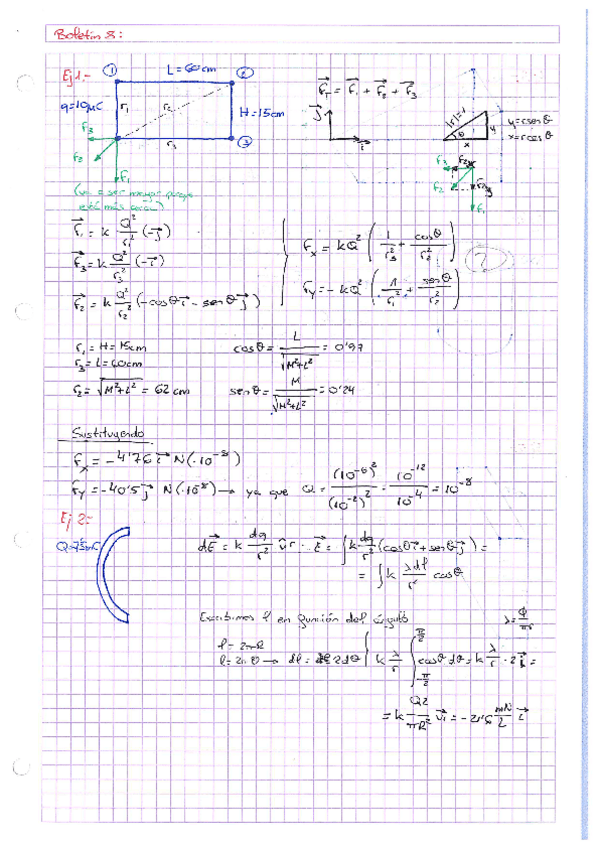 Boletín 8:
Ej 1.-
① L = 60cm ②
q=10μC r₁ r₂ H=15cm
F₃ r₃ ③
F₂
F₁
está más cerca)
F⃗_T = F⃗₁ + F⃗₂ + F⃗₃
j⃗
i⃗
|r|=1 θ x y
x=rcosθ
F₃ F₂x
F₂ F₂y
F₁
F⃗₁ = k Q²/r₁² (-j⃗)
F⃗₃ = k Q²/r₃² (-i⃗)
F⃗₂ = k Q²/r₂² (-cosθ i⃗ - senθ j⃗)
F_x = kQ² (1/r₃² + cosθ/r₂²)
F_y = -kQ² (1/r₁² + senθ/r₂²)
?
r₁ = H = 15cm
r₃ = L = 60cm
r₂ = √(H²+L²) = 62 cm
cosθ = L/√(H²+L²) = 0'97
senθ = H/√(H²+L²) = 0'24
Sustituyendo
F_x = -4'76 i⃗ N(·10⁻⁸)
F_y = -40'5 j⃗ N(·10⁻⁸) → ya que Q = (10⁻⁶)²/(10⁻²)² = 10⁻¹²/10⁻⁴ = 10⁻⁸
Ej 2:-
dE⃗ = k dq/r² u⃗r · E⃗ = ∫k dq/r² (cosθ i⃗ + senθ j⃗) =
= ∫ k λdl/r² cosθ
Escribimos l en función del ángulo
λ = Q/πr
l = 2πR
k λ/r ∫_{-π/2}^{π/2} cosθ dθ = k λ/r · 2
= k Q2/πR²